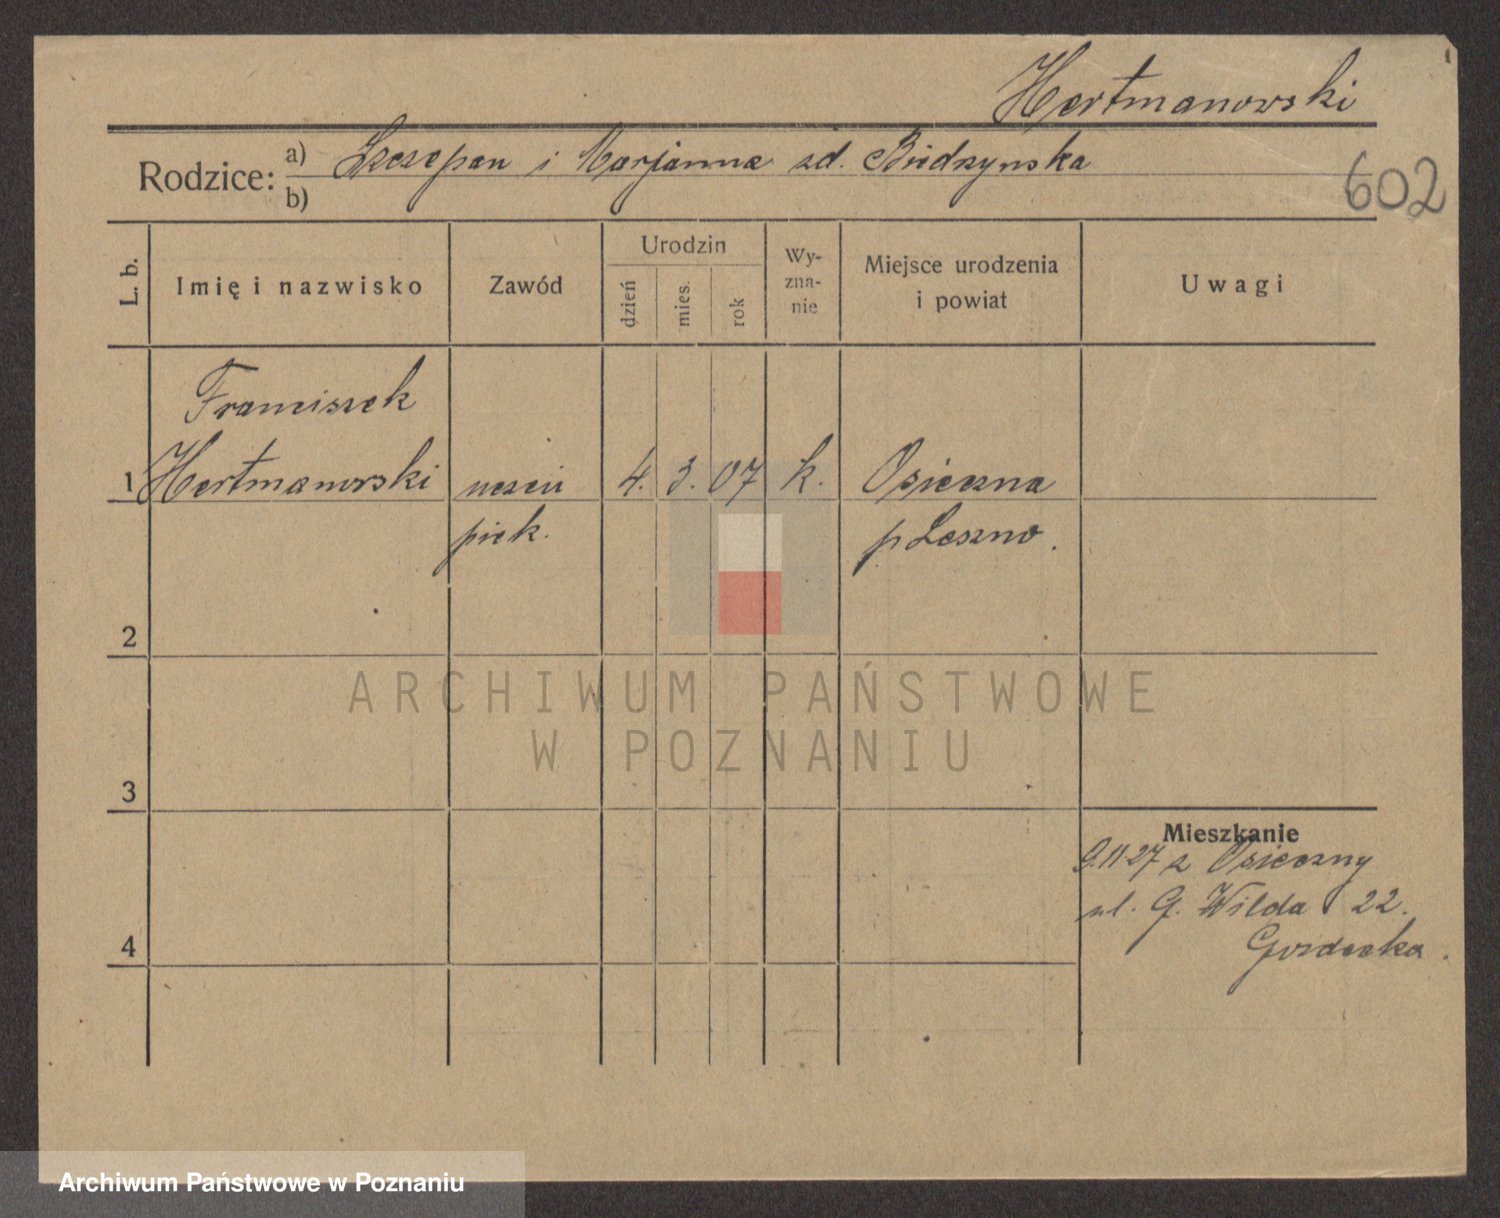 Hertmanowski
Rodzice: a) Szczepan i Marjanna zd. Budzynska
b)
602
L. b. Imię i nazwisko Zawód Urodzin dzień mies. rok Wy-zna-nie Miejsce urodzenia i powiat Uwagi
Franciszek
1 Hertmanowski uczeń 4. 3. 07 k. Osieczna
piek. p Leszno.
2
ARCHIWUM PAŃSTWOWE
W POZNANIU
3
Mieszkanie
9.11 27 z Osieczny
ul. G. Wilda 22.
4
Archiwum Państwowe w Poznaniu